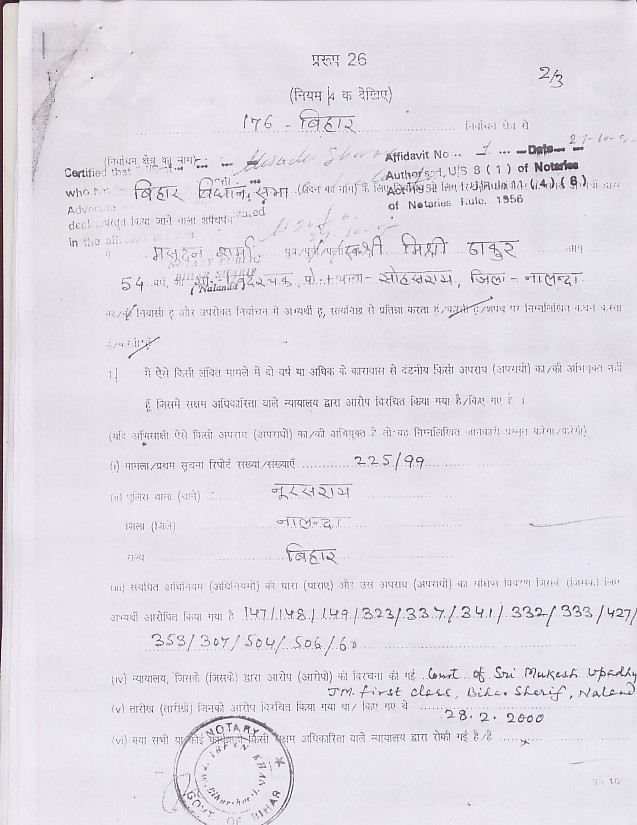 प्ररूप 26
2/3
(नियम 4 क देखिए)
176 - बिहार निर्वाचन क्षेत्र से
(निर्वाचन क्षेत्र का नाम)
Affidavit No .. 1 ...Date...
Certified that
Authorised, U/S 8 (1) of Notaries
who has
बिहार विधान सभा (सदन का नाम) के लिए
Act 1952
Rule (4) (8)
Advocate
of Notaries Rule. 1956
प्रस्तुत किया जाने वाला शपथपत्र
in the
मसूदन शर्मा पुत्र/पुत्री/पत्नी श्री मिश्री ठाकुर आयु
54 वर्ष, पो. + थाना - सोहसराय, जिला - नालन्दा
Nalanda
का/की निवासी हूं और उपरोक्त निर्वाचन में अभ्यर्थी हूं, सत्यनिष्ठा से प्रतिज्ञा करता हूं/करती हूं/शपथ पर निम्नलिखित कथन करता
हूं/करती हूं
1. मैं ऐसे किसी लंबित मामले में दो वर्ष या अधिक के कारावास से दंडनीय किसी अपराध (अपराधों) का/की अभियुक्त नहीं
हूँ जिसमें सक्षम अधिकारिता वाले न्यायालय द्वारा आरोप विरचित किया गया है/किए गए हैं ।
(यदि अभिसाक्षी ऐसे किसी अपराध (अपराधों) का/की अभियुक्त है तो वह निम्नलिखित जानकारी प्रस्तुत करेगा/करेगी)
(i) मामला/प्रथम सूचना रिपोर्ट संख्या/संख्याएँ 225/99
(ii) पुलिस थाना (थाने) नूरसराय
जिला (जिले) नालन्दा
राज्य बिहार
(iii) संबंधित अधिनियम (अधिनियमों) की धारा (धाराएं) और उस अपराध (अपराधों) का संक्षिप्त विवरण जिसके (जिनके) लिए
अभ्यर्थी आरोपित किया गया है 147/148/149/323/337/341/332/333/427/
353/307/504/506/
(iv) न्यायालय, जिसके (जिसके) द्वारा आरोप (आरोपों) की विरचना की गई Court of Sri Mukesh Upadhy
JM. first class, Bihar Sharif, Naland
(v) तारीख (तारीखें) जिनको आरोप विरचित किया गया था/ किए गए थे
28.2.2000
(vi) क्या सभी या कोई कार्यवाही किसी सक्षम अधिकारिता वाले न्यायालय द्वारा रोकी गई है/हैं x
NOTARY
IRFAN KHAN
Biharsharif
GOVT. OF BIHAR